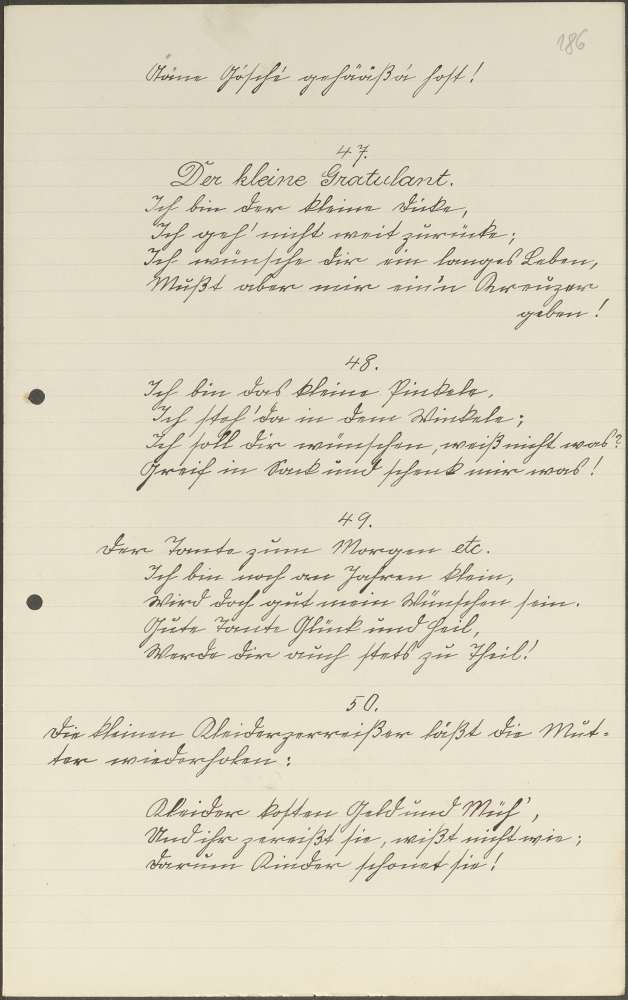 186
Täne Gösche gehääßä host!
47.
Der kleine Gratulant.
Ich bin der kleine Dicke,
Ich geh' nicht weit zurücke;
Ich wünsche dir ein langes Leben,
Mußt aber mir ein'n Kreuzer
geben!
48.
Ich bin das kleine Pinkele,
Ich steh' da in dem Winkele;
Ich soll dir wünschen, weiß nicht was?
Greif in Sack und schenk mir was!
49.
Der Tante zum Morgen etc.
Ich bin noch an Jahren klein,
Wird doch gut mein Wünschen sein.
Gute Tante Glück und Heil,
Werde dir auch stets zu Theil!
50.
Die kleinen Kleiderzerreißer läßt die Mut-
ter wiederholen:
Kleider kosten Geld und Müh',
Und ihr zereißt sie, wißt nicht wie;
Darum Kinder schonet sie!